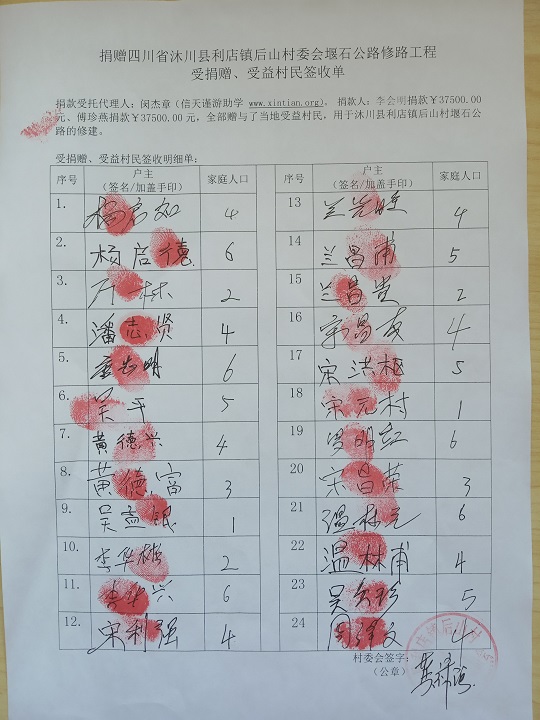 捐赠四川省沐川县利店镇后山村委会堰石公路修路工程
受捐赠、受益村民签收单
捐款受托代理人：闵杰章（信天谨游助学 www.xintian.org)、捐款人：李会明捐款￥37500.00
元、傅珍燕捐款￥37500.00 元，全部赠与了当地受益村民，用于沐川县利店镇后山村堰石公
路的修建。
受捐赠、受益村民签收明细单：
序号 户主（签名/加盖手印） 家庭人口 序号 户主（签名/加盖手印） 家庭人口
1. 杨启如 4 13 兰 4
2. 杨启德 6 14 兰昌甫 5
3. 2 15 兰昌贵 2
4. 潘志贤 4 16 宋昌友 4
5. 志明 6 17 宋洪柩 5
6. 吴平 5 18 宋元村 1
7. 黄德兴 4 19 明 6
8. 黄德富 3 20 宋昌荣 3
9. 吴 1 21 温林元 6
10. 李华彬 2 22 温林甫 4
11. 李华兴 6 23 吴 5
12. 宋利强 4 24 周 4
村委会签字：
（公章）